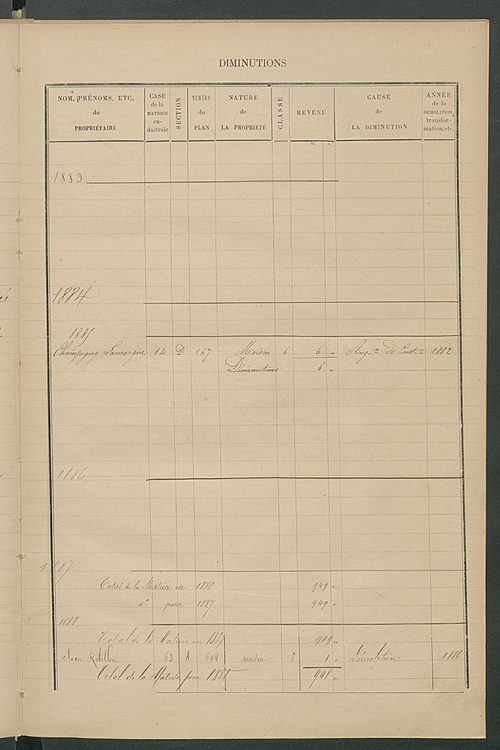 DIMINUTIONS
NOM, PRÉNOMS, ETC, du PROPRIÉTAIRE
CASE de la MATRICE cadastrale
SECTION
NUMÉRO du PLAN
NATURE de LA PROPRIÉTÉ
CLASSE
REVENU
CAUSE de LA DIMINUTION
ANNÉE de la DÉMOLITION, transformation, etc.
1883
1884
Champigny 14 D 167 Maison 6 6 " 1882
Diminutions 6 "
1887
Total de la Matrice en 949 "
d° pour 1887 949 "
1888
Total de la Matrice en 1887 949 "
63 A 649 maison 8 1 " Démolition 1886
Total de la Matrice pour 1888 948 "